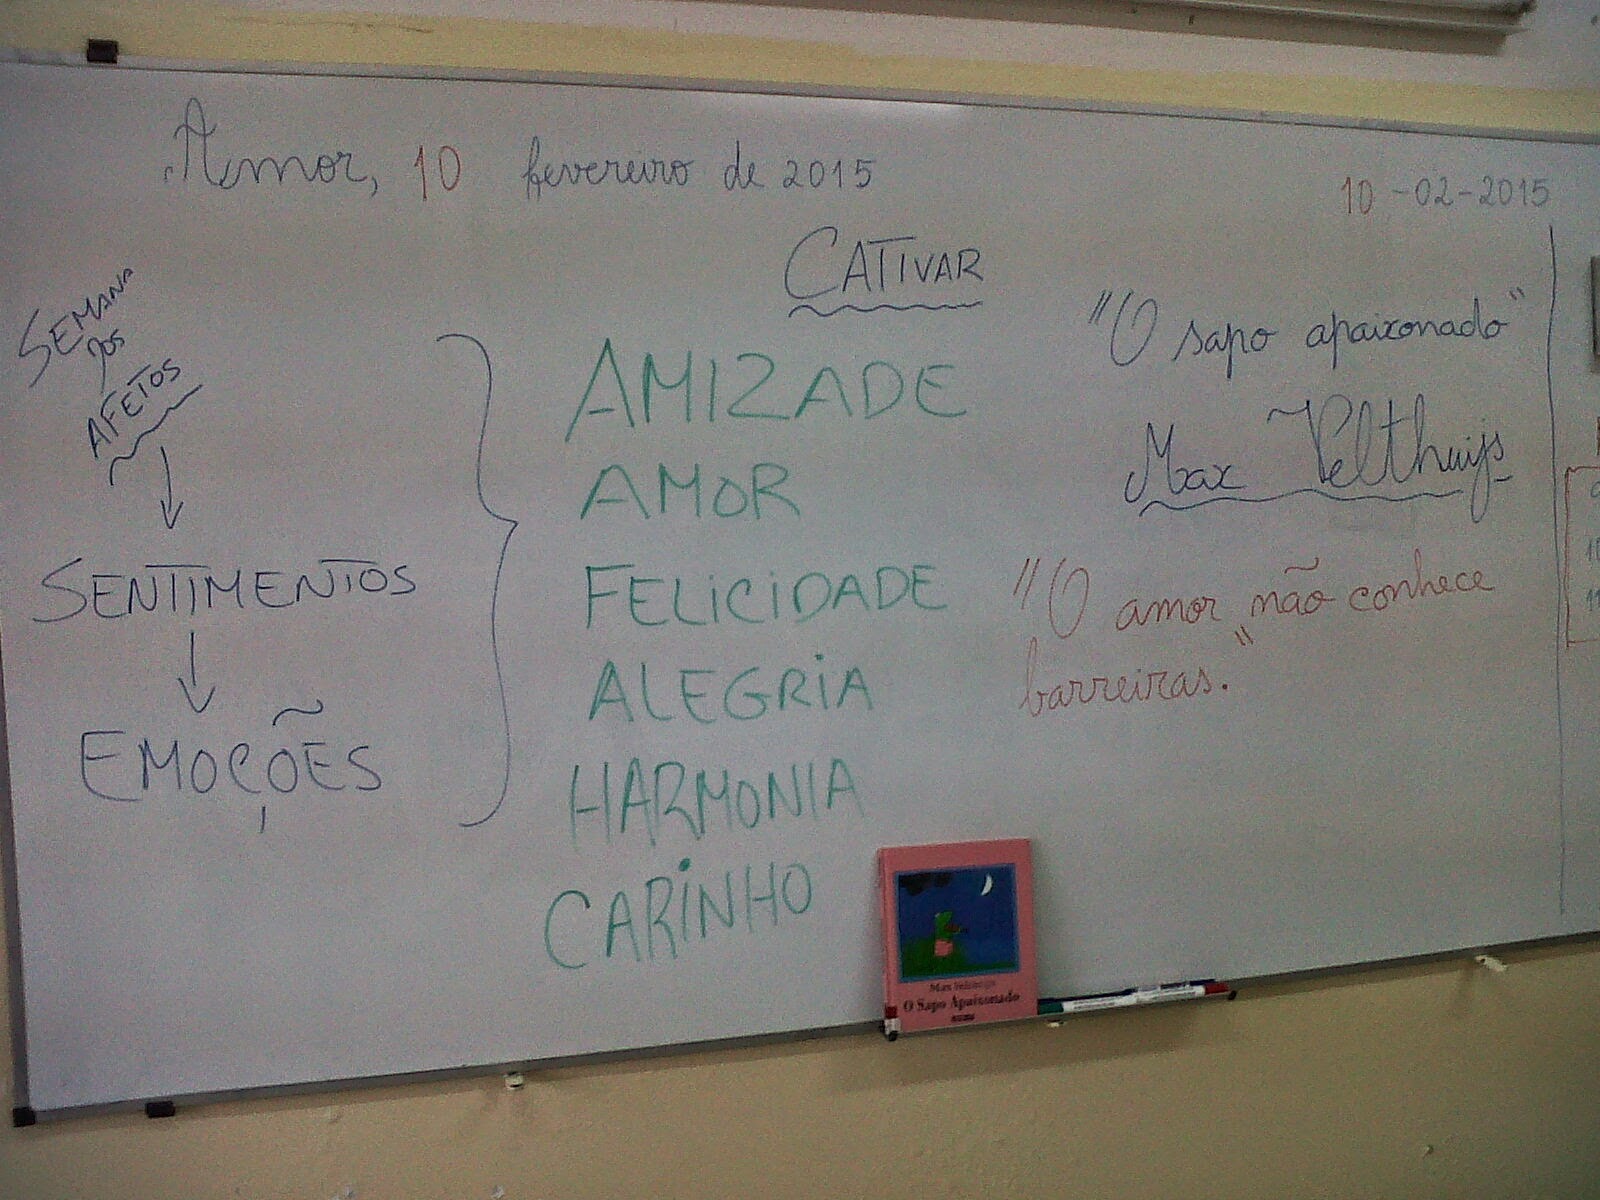 Amor, 10 fevereiro de 2015
10-02-2015
CATIVAR
SEMANA
DOS
AFETOS
SENTIMENTOS
EMOÇÕES
AMIZADE
AMOR
FELICIDADE
ALEGRIA
HARMONIA
CARINHO
"O sapo apaixonado"
Max Velthuijs
"O amor não conhece
barreiras."
Max Velthuijs
O Sapo Apaixonado